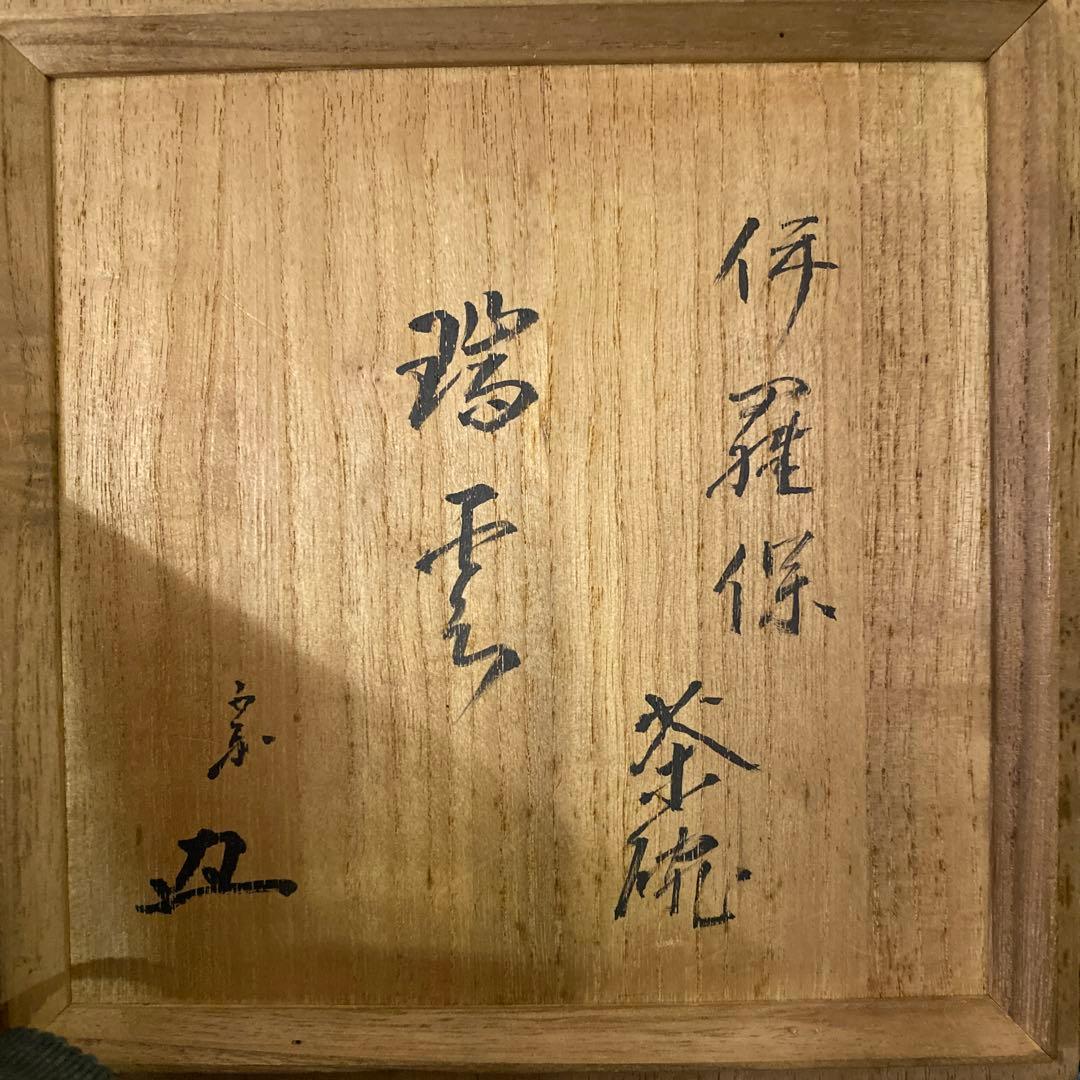 伊羅保
茶碗
瑞雲
宗